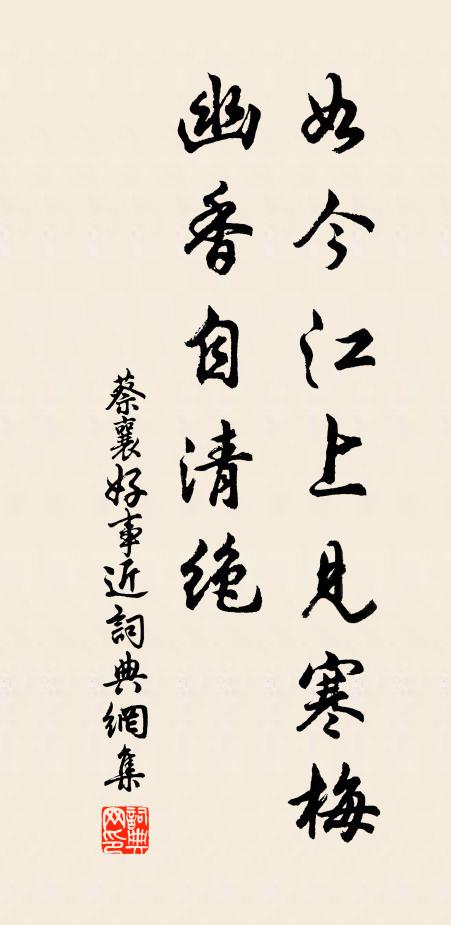 如今江上見寒梅
幽香自清絶
蔡襄好事近詞典網集
詞典
网印